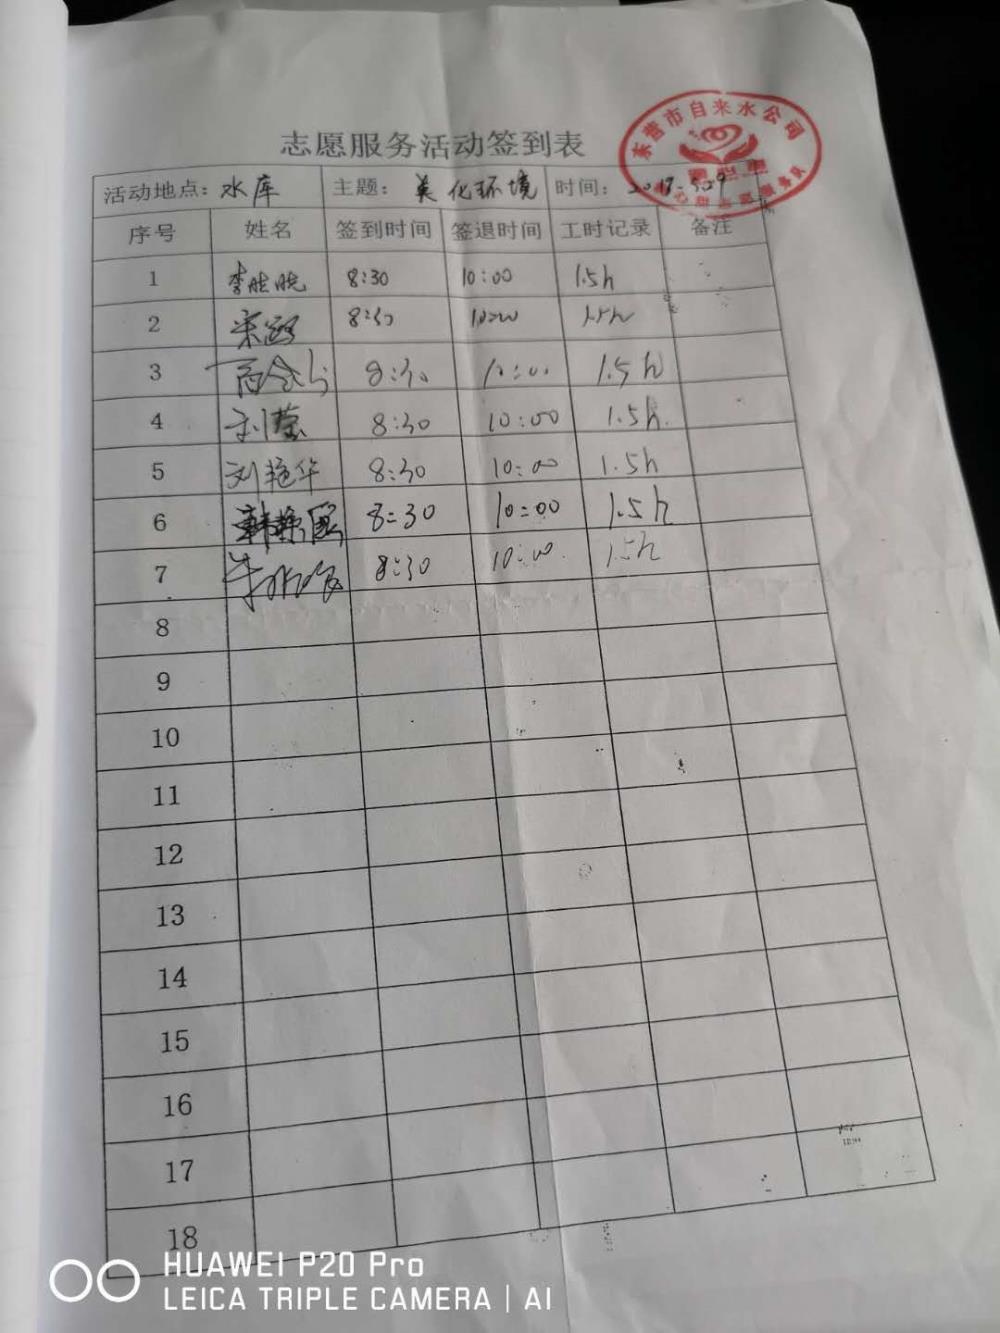 志愿服务活动签到表
东营市自来水公司
活动地点：水库 主题：美化环境 时间：
序号 姓名 签到时间 签退时间 工时记录 备注
1 李胜晓 8:30 10:00 1.5h
2 8:30 10:00 1.5h
3 8:30 10:00 1.5h
4 刘莹 8:30 10:00 1.5h
5 刘艳华 8:30 10:00 1.5h
6 8:30 10:00 1.5h
7 8:30 10:00 1.5h
8
9
10
11
12
13
14
15
16
17
18
HUAWEI P20 Pro
LEICA TRIPLE CAMERA | AI